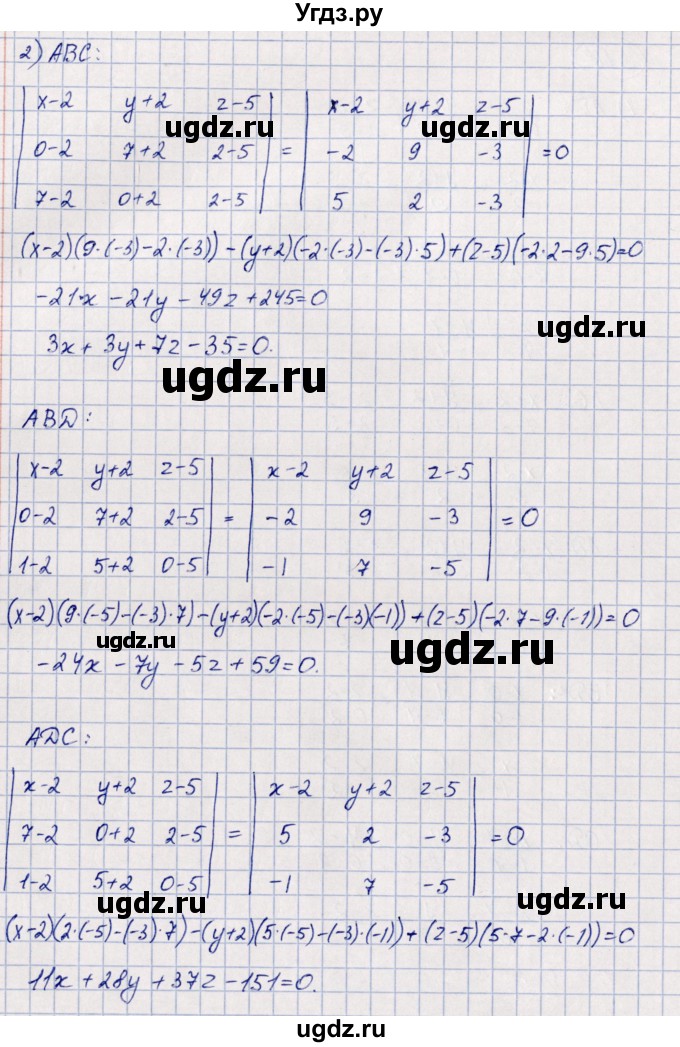 Угдз.ру
2) ABC:
|x-2 y+2 z-5| |x-2 y+2 z-5|
|0-2 7+2 2-5| = |-2 9 -3| =0
|7-2 0+2 2-5| |5 2 -3|
ugdz.ru ugdz.ru
(x-2)(9·(-3)-2·(-3))-(y+2)(-2·(-3)-(-3)·5)+(z-5)(-2·2-9·5)=0
-21x-21y-49z+245=0
ugdz.ru
3x+3y+7z-35=0.
ugdz.ru
ABD:
|x-2 y+2 z-5| |x-2 y+2 z-5|
|0-2 7+2 2-5| = |-2 9 -3| =0
|1-2 5+2 0-5| |-1 7 -5|
ugdz.ru
(x-2)(9·(-5)-(-3)·7)-(y+2)(-2·(-5)-(-3)(-1))+(z-5)(-2·7-9·(-1))=0
ugdz.ru ugdz.ru
-24x-7y-5z+59=0.
ADC:
|x-2 y+2 z-5| |x-2 y+2 z-5|
|7-2 0+2 2-5| = |5 2 -3| =0
|1-2 5+2 0-5| |-1 7 -5|
ugdz.ru ugdz.ru
(x-2)(2·(-5)-(-3)·7)-(y+2)(5·(-5)-(-3)·(-1))+(z-5)(5·7-2·(-1))=0
11x+28y+37z-151=0.
ugdz.ru